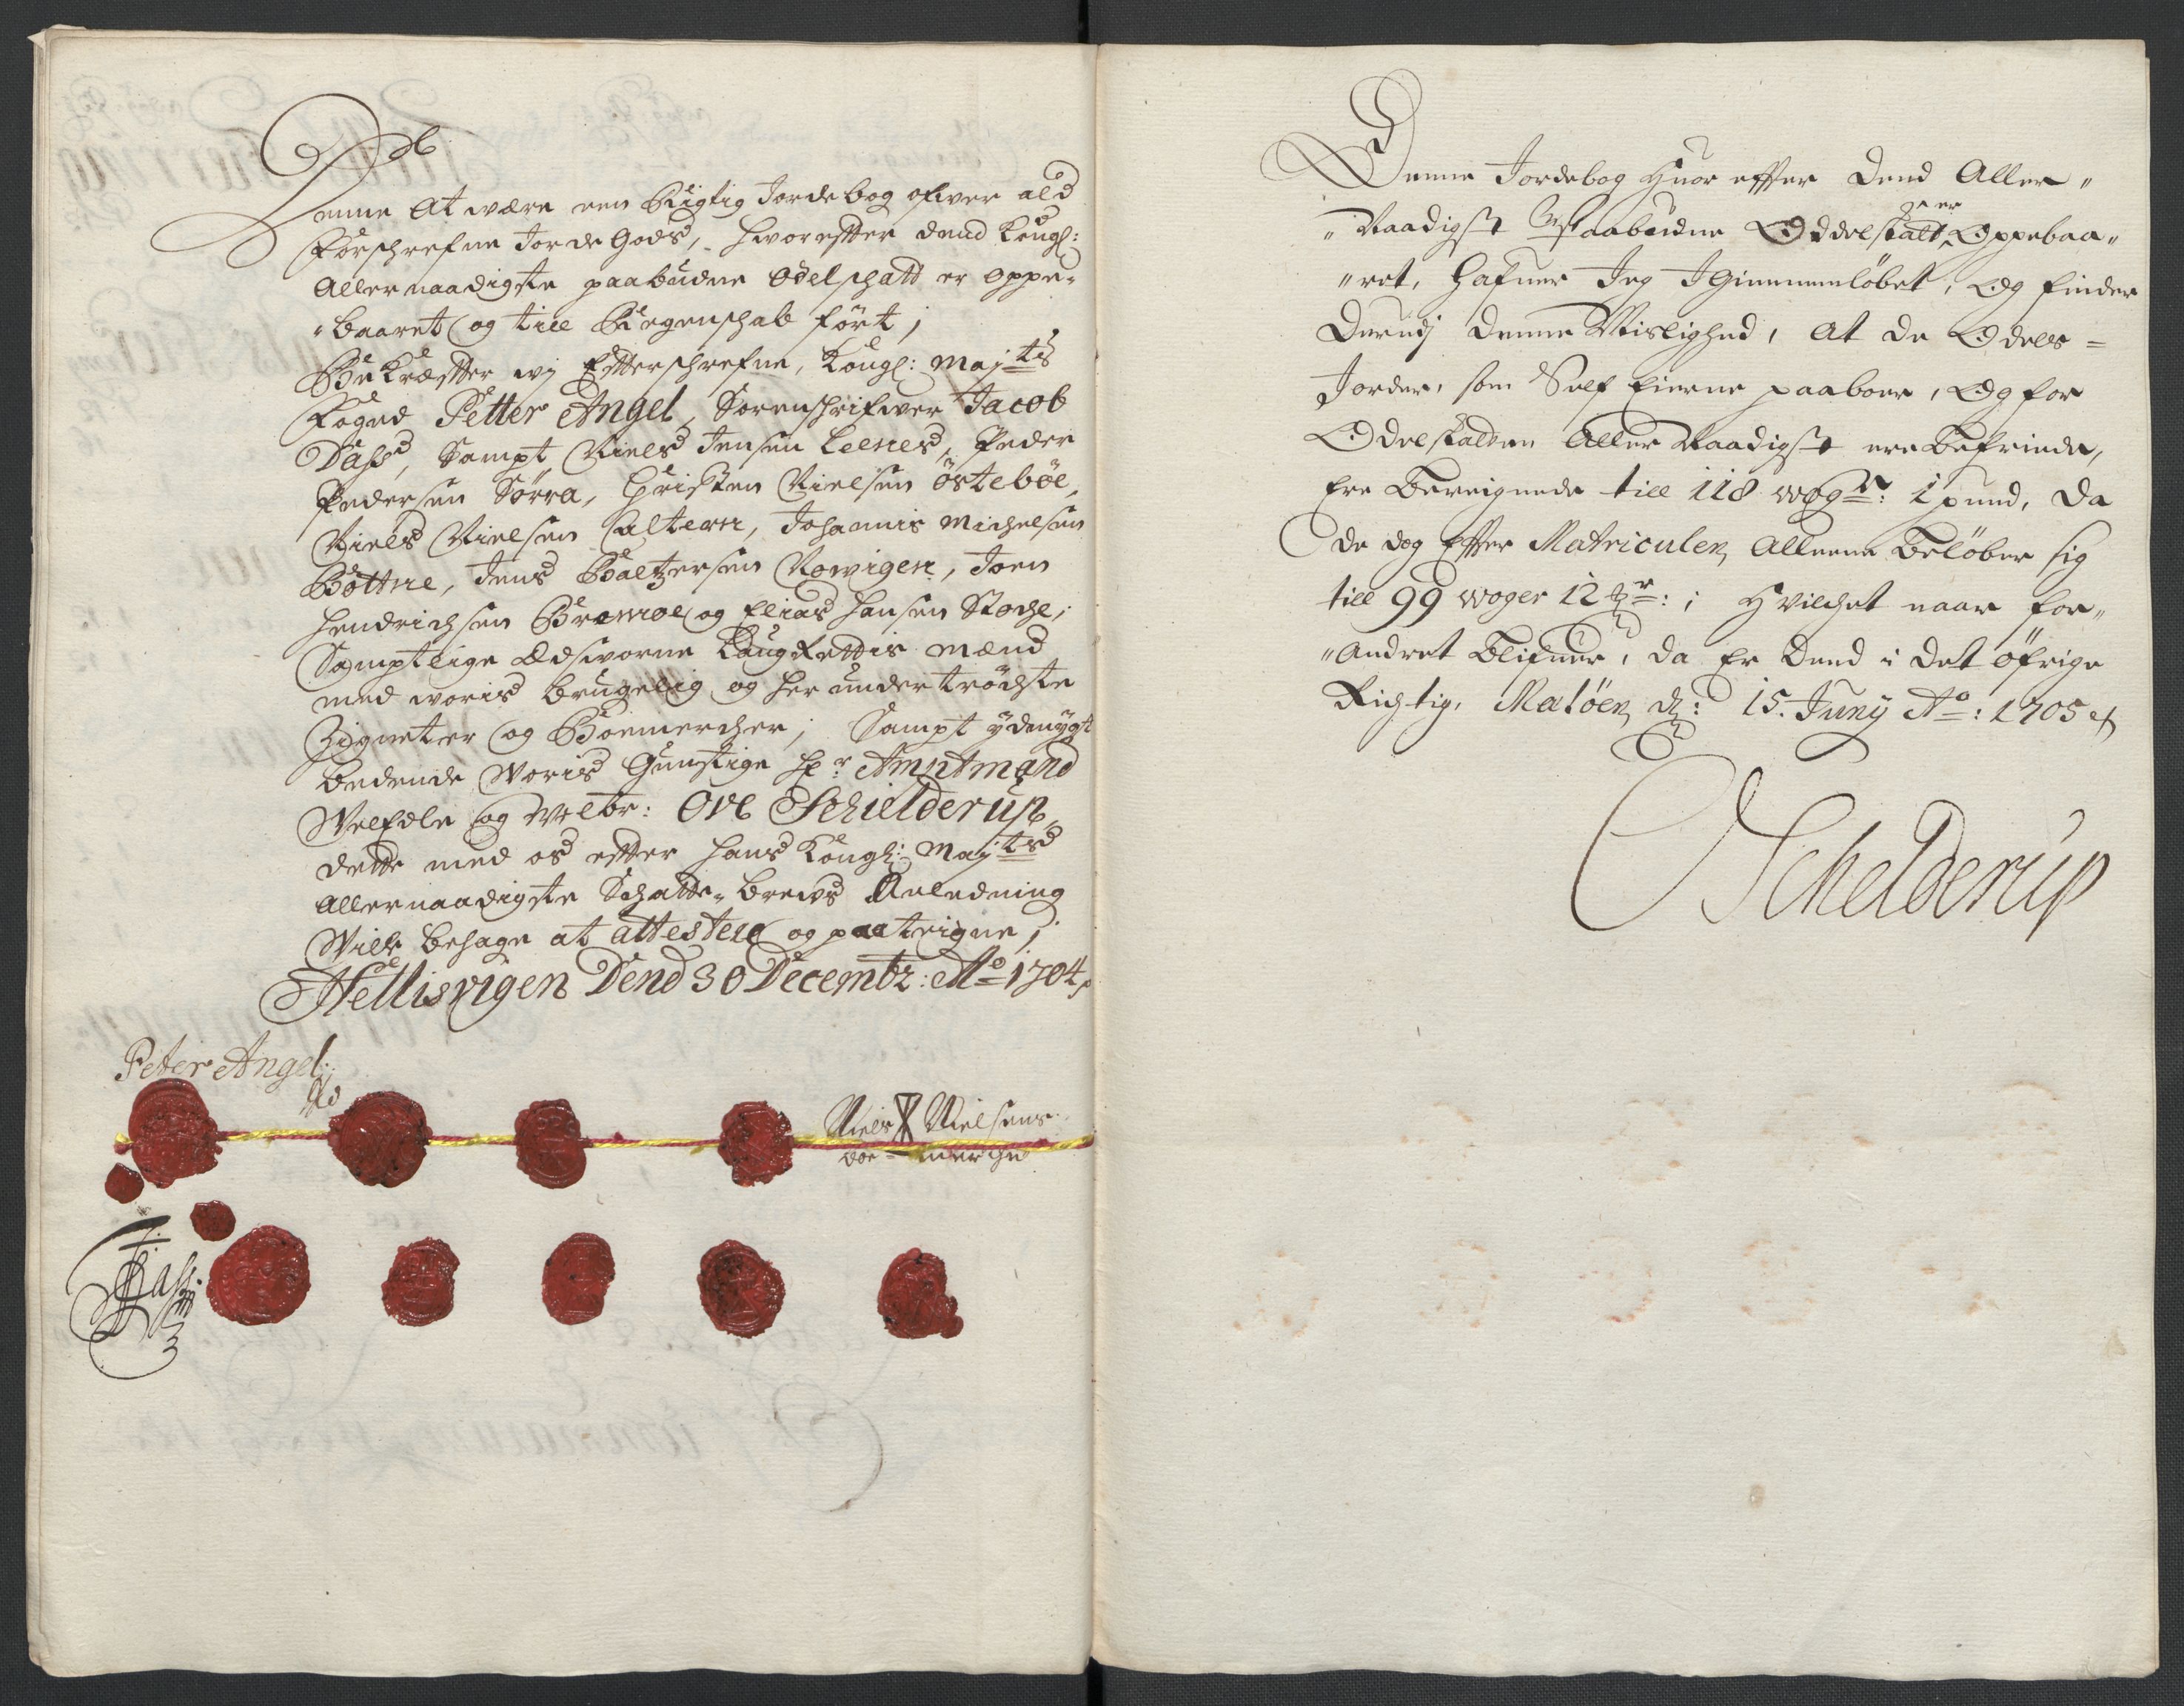 Denne At være een Rigtig Jordebog ofwer ald
Forschrefne Jorde Gods, hworeffter dend Kongl:
Allernaadigste paabudne Odelschatt er oppe-
baaret og till Regenschab ført;
Bekræffter wj Effterschrefne, Kongl: Maj:ts
Foged Petter Angel, Sorenschrifwer Jacob
Dass, Sampt Niels Jensen Leenes, Peder
Pedersen Sørra, Christen Nielsen Østebøe,
Niels Nielsen Altern, Johannis Michelsen
Bottne, Jens Baltzersen Nowigen, Joen
Hendrichsen Bremoe og Elias Hansen Stoche;
Samptlige Edsworne Laugrettis mænd
med woris brugelig og her under trøchte
Zigneter og Boemercher; Sampt ydmygt
bedende Woris Gunstige Hr Amptmand
WelEdle og Welbr: Ove Schielderup,
dette med os effter Hans Kongl: Maj:ts
Allernaadigste Schatte-brews Anledning
Wille behage at attestere og paateigne;
Hellisvigen Dend 30 Decembr: Ao 1704
Peter Angel
Niels Nielsens
boe-merche
JDass
Denne Jordebog Huor effter dend Aller-
Naadigst Paabudne Oddelskatt, er Oppebaa-
ret, Hafuer Jeg IGiennemløbet, Og finder
derudj denne Mislighed, At de Odels-
Jorder, som Self Eierne paaboer, Og for
Odelskatten Aller Naadigst ere befriede,
Ere Bereignede till 118 wogr: 1 pund, da
de dog Effter Matriculen, Alleene beløber sig
till 99 woger 12 : ; Hvilchet naar for-
Andret blifuer, da Er dend i det øfrige
Richtig, Maløen, d: 15. Juny Ao: 1705
OSchelderup